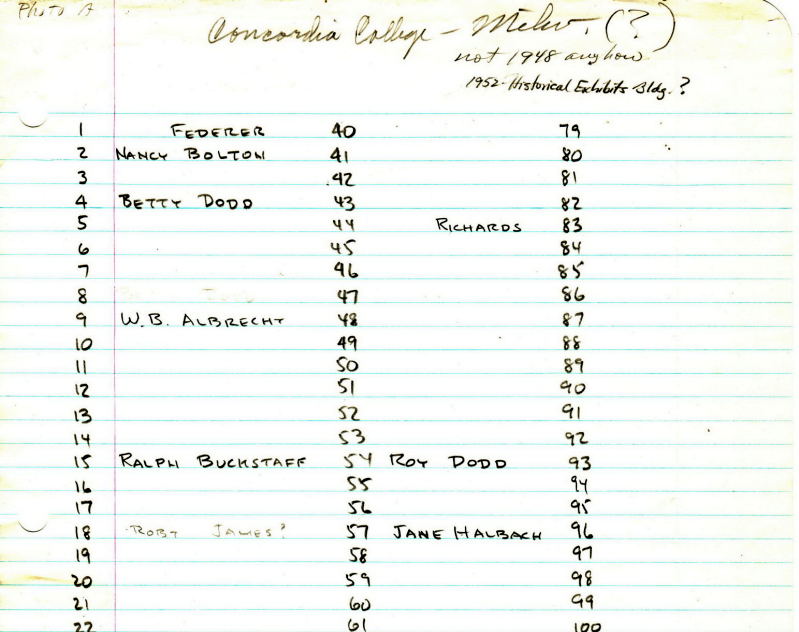 Photo A
Concordia College - Milw. (?)
not 1948 anyhow
1952- Historical Exhibits Bldg. ?
1 FEDERER 40 79
2 NANCY BOLTON 41 80
3 42 81
4 BETTY DODD 43 82
5 44 RICHARDS 83
6 45 84
7 46 85
8 47 86
9 W.B. ALBRECHT 48 87
10 49 88
11 50 89
12 51 90
13 52 91
14 53 92
15 RALPH BUCKSTAFF 54 ROY DODD 93
16 55 94
17 56 95
18 ROBT JAMES? 57 JANE HALBACH 96
19 58 97
20 59 98
21 60 99
22 61 100